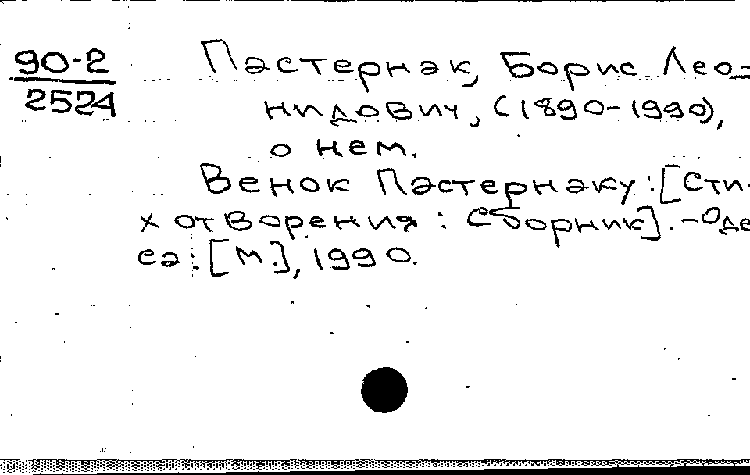 90-2
2524
Пастернак, Борис Лео=
нидович, (1890-1990),
о нем.
Венок Пастернаку: [Сти-
хотворения: Сборник]. - Оде
са: [М.], 1990.